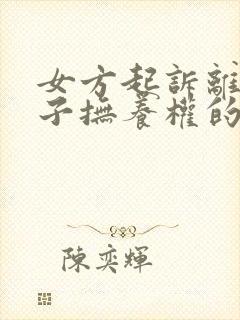 女方起訴離
子撫養權的
陳奕輝